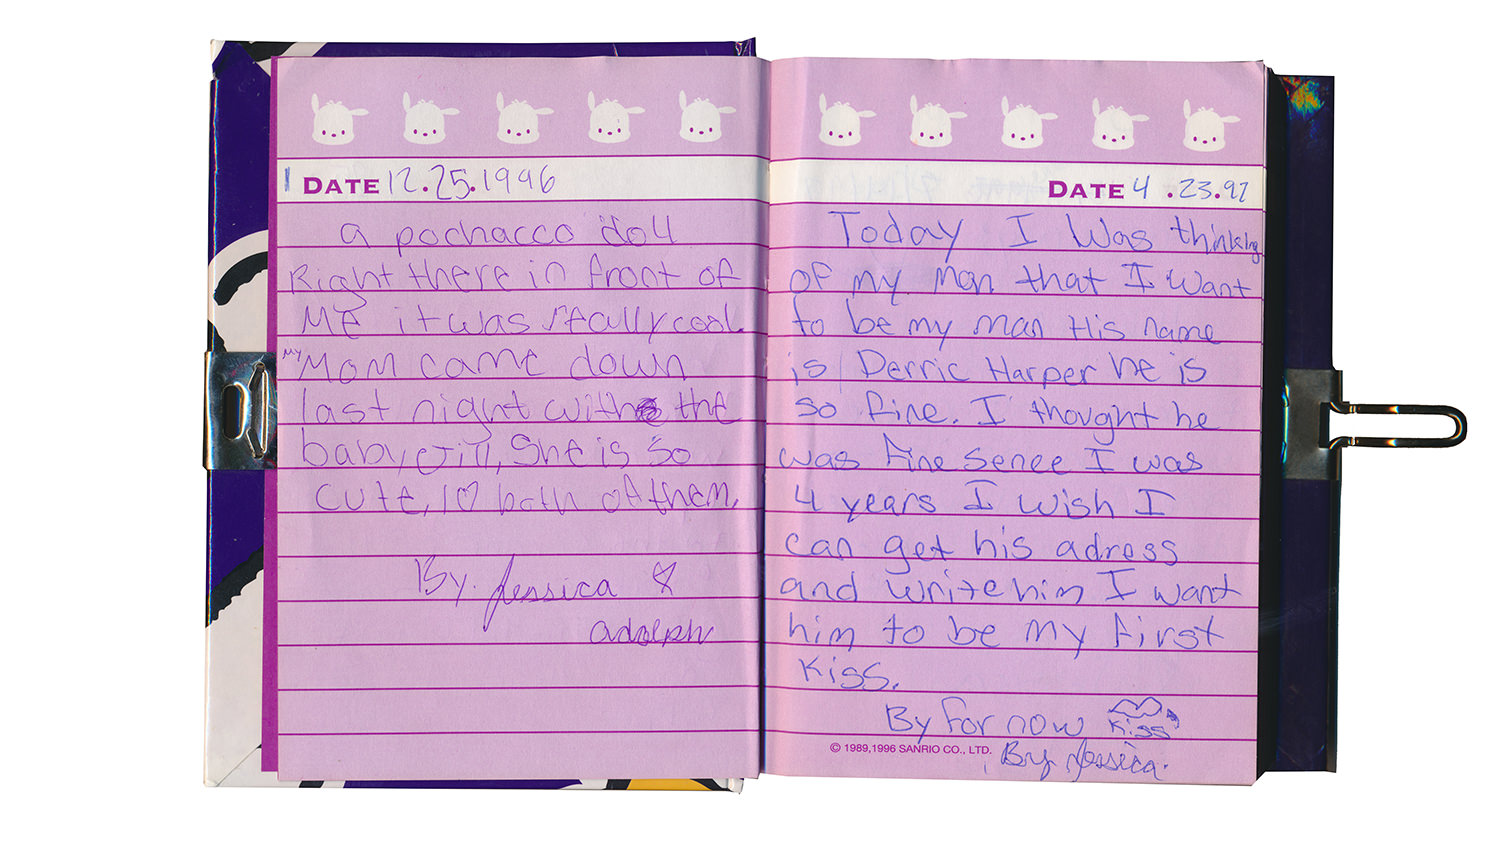 1 DATE 12.25.1996
a pochacco doll
Right there in front of
ME it was really cool.
My Mom came down
last night with the
baby Jill, She is so
cute, I ♡ both of them,
By. Jessica ☆
adolph
DATE 4 .23.97
Today I Was thinking
of my man that I want
to be my man His name
is Derric Harper he is
so fine. I thought he
was fine sence I was
4 years I wish I
can get his adress
and write him I want
him to be my first
Kiss.
By for now Kiss
© 1989,1996 SANRIO CO., LTD.
By Jessica.